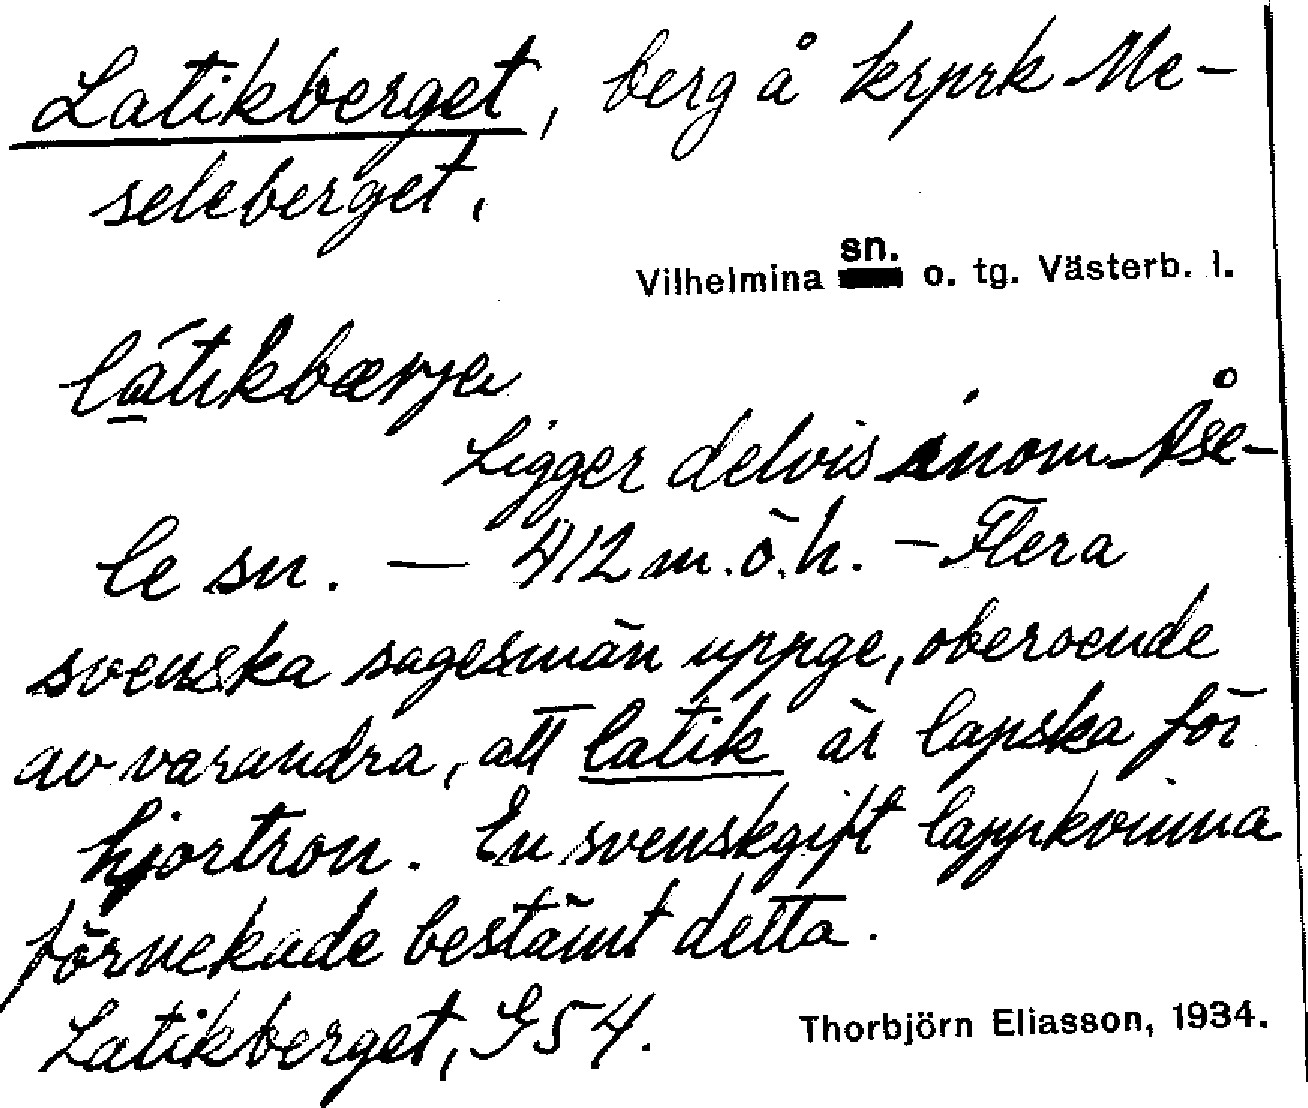 Latikberget, berg å krprk Me-
seleberget.
sn.
Vilhelmina o. tg. Västerb. l.
látikbærja
Ligger delvis inom Åse-
le sn. — 412 m.ö.h. — Flera
svenska sagesmän uppge, oberoende
av varandra, att latik är lapska för
hjortron. En svenskgift lappkvinna
förnekade bestämt detta.
Latikberget, G54.
Thorbjörn Eliasson, 1934.